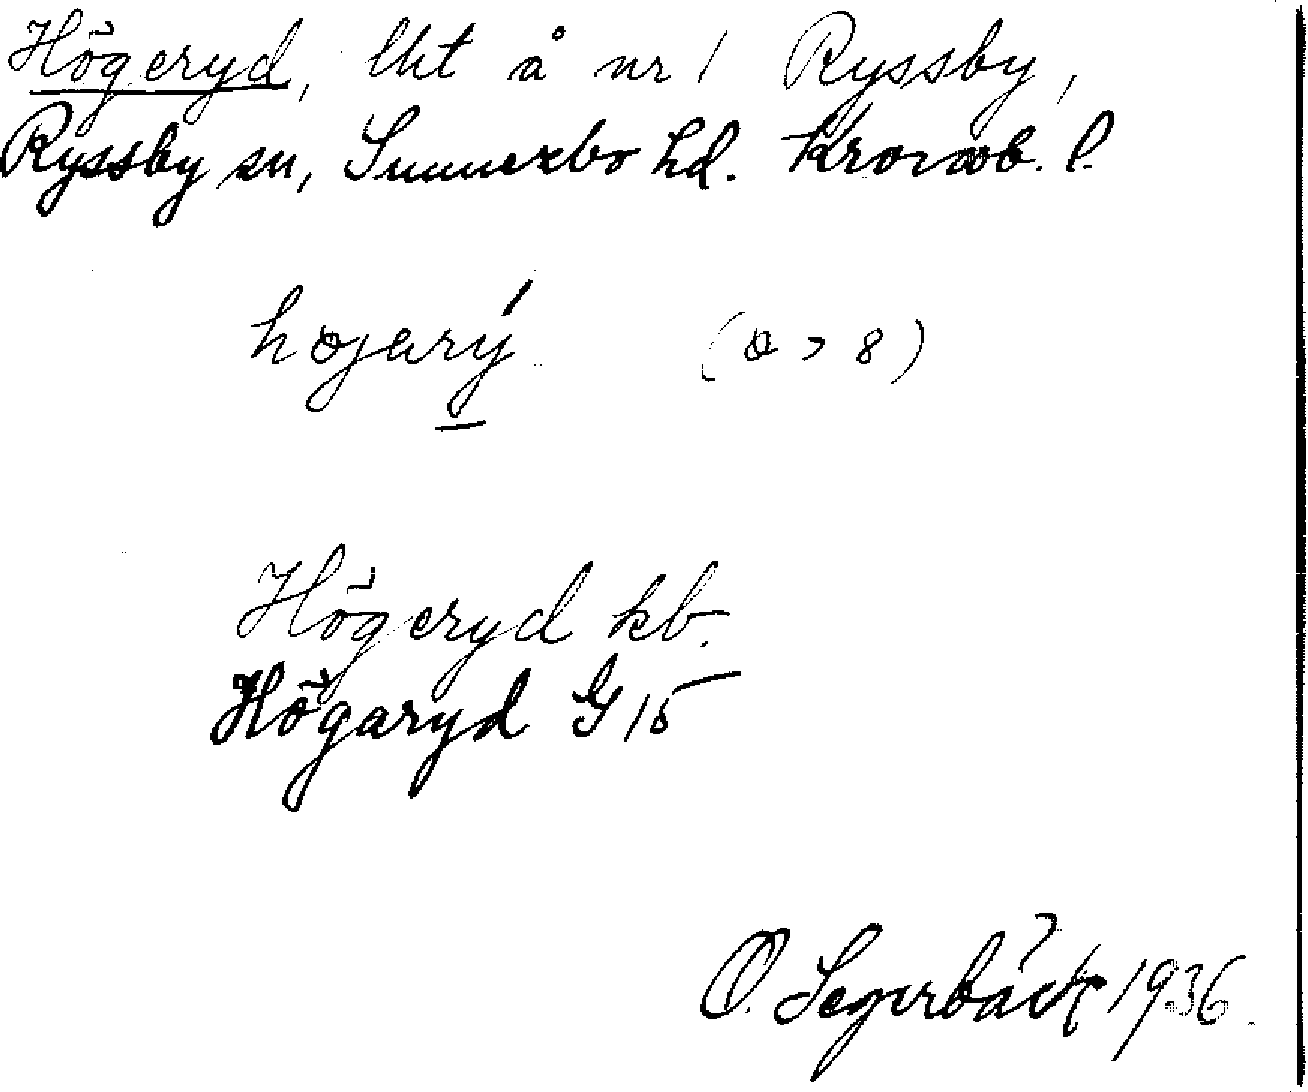 Högeryd, lht å nr 1 Ryssby,
Ryssby sn, Sunnerbo hd. Kronob. l.
högarý (ö > 8)
Högeryd kb.
Högaryd G 15
O. Segerbäck 1936.